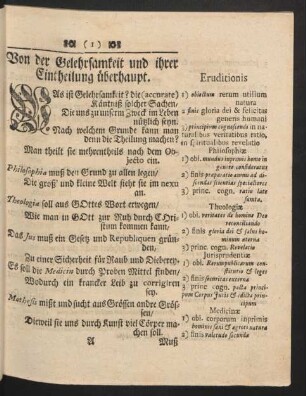 ( 1 )
Von der Gelehrsamkeit und ihrer
Eintheilung überhaupt.
WAs ist Gelehrsamkeit? die (accurate)
Käntniß solcher Sachen/
Die uns zu unserm Zweck im Leben
nützlich seyn.
Nach welchem Grunde kann man
denn die Theilung machen?
Man theilt sie mehrentheils nach dem Ob-
jecto ein.
Philosophia muß den Grund zu allen legen/
Die groß' und kleine Welt steht für im nexu
an.
Theologia soll aus GOttes Wort erwegen/
Wie man in GOtt zur Ruh durch CHri-
stum kommen kann/
Das Jus muß ein Gesetz und Republiquen grün-
den/
Zu einer Sicherheit für Raub und Dieberey.
Es soll die Medicina durch Proben Mittel finden/
Wodurch ein krancker Leib zu corrigiren
sey.
Mathesis mißt und sucht aus Grössen andre Grös-
sen/
Dieweil sie uns durch Kunst viel Cörper ma-
chen soll.
A Muß
Eruditionis
1) obiectum rerum utilium
natura
2) finis gloria dei & felicitas
generis humani
3) principium cognoscendi in na-
turalibus veritatibus ratio,
in spiritualibus revelatio
Philosophiæ
1) obi. mundus inprimis homo in
genere consideratus
2) finis praeparatio animi ad di-
scendas scientias speciatiores
3) princ. cogn. ratio late
sumta,
Theologiæ
1) obi. veritates de homine Deo
reconciliando
2) finis gloria dei & salus ho-
minum aeterna
3) princ. cogn. Revelatio
Jurisprudentiæ
1) obi. Rerumpublicarum con-
stitutio & leges
2) finis securitas externa
3) princ. cogn. pacta princi-
pum Corpus Juris & edicta prin-
cipum
Medicinæ
1) obi. corporum inprimis
hominis sani & aegroti natura
2) finis valetudo secunda